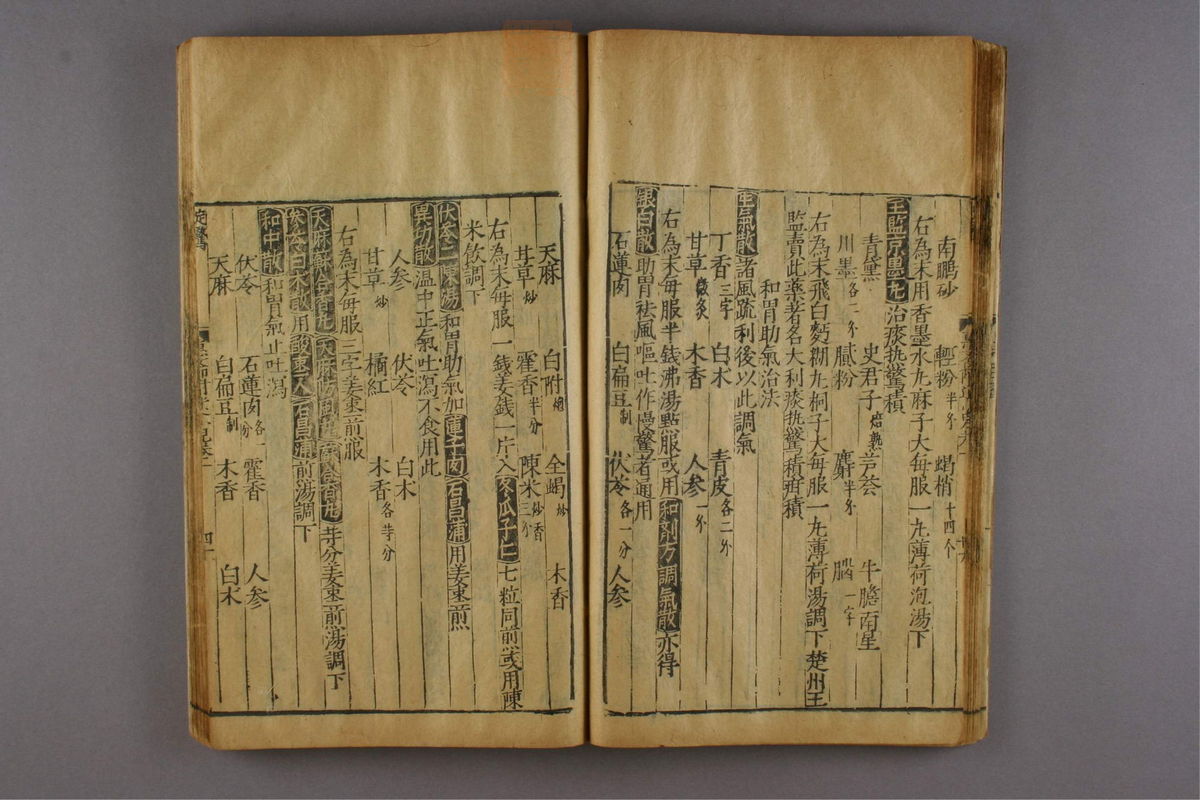 南鵬砂 輕粉半分 蝎梢十四个
右為末用香墨水丸麻子大每服一丸薄荷泡湯下
王監京墨丸治痰热驚積
青黛 史君子焙熟 芦荟 牛膽南星
川墨各二分 膩粉 麝半分 腦一字
右為末飛白麪糊丸桐子大每服一丸薄荷湯調下楚州王
監賣此藥著名大利痰热驚積疳積
和胃助氣治法
生氣散諸風疏利後以此調氣
丁香三字 白术 青皮各二分
甘草微炙 木香 人参一分
右為末每服半錢沸湯點服或用和剤方調氣散亦得
銀白散助胃袪風嘔吐作慢驚者通用
石蓮肉 白扁豆制 伏苓各一分 人参
天麻 白附炮 全蝎炒 木香
甘草炒 霍香半分 陳米炒香三分
右為末每服一錢姜錢一片入冬瓜子仁七粒同煎或用陳
米飲調下
伏苓二陳湯和胃助氣加蓮子肉石昌蒲用姜棗煎
異功散温中正氣吐瀉不食用此
人参 伏苓 白术
甘草炒 橘紅 木香各等分
右為末每服三字姜棗煎服
天麻蘇合香丸天麻防風丸蘇合香丸等分姜棗煎湯調下
用酸棗人石昌蒲煎湯調下
和中散和胃氣止吐瀉
伏苓 石蓮肉各一分 霍香 人参
天麻 白扁豆制 木香 白术
定驚
四十